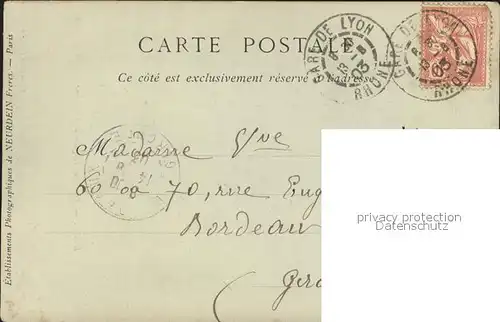 CARTE POSTALE
Ce côté est exclusivement réservé à l'adresse
GARE DE LYON
RHONE
GARE DE LYON
RHONE
Madame Vve
60 ou 70, rue Eug
Bordeau
Giro
privacy protection
watermark
Etablissements Photographiques de NEURDEIN Frères. - Paris